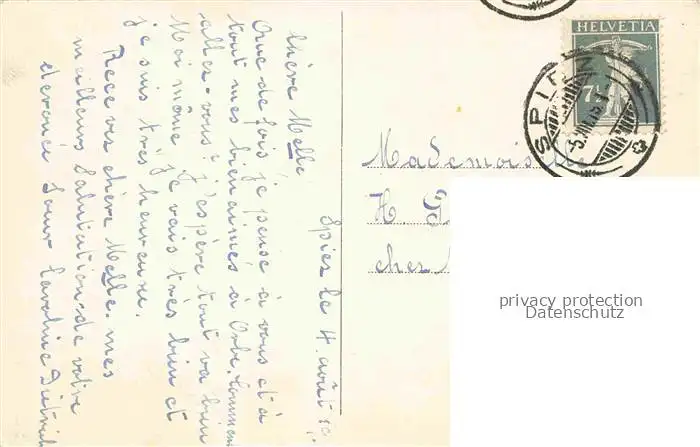 Spiez le 4 août 19
Chère Melle
Que de fois je pense à vous et à
tout mes bienaimés à Orbe. Comment
allez-vous? J'espère tout va bien
Moi même je vais très bien et
je suis très heureuse.
Recevez chère Melle. mes
meilleurs Salutation de votre
dévouée Sœur Caroline Dietrich
HELVETIA
7½
SPIEZ
Mademoiselle
H. G
chez
privacy protection
Datenschutz